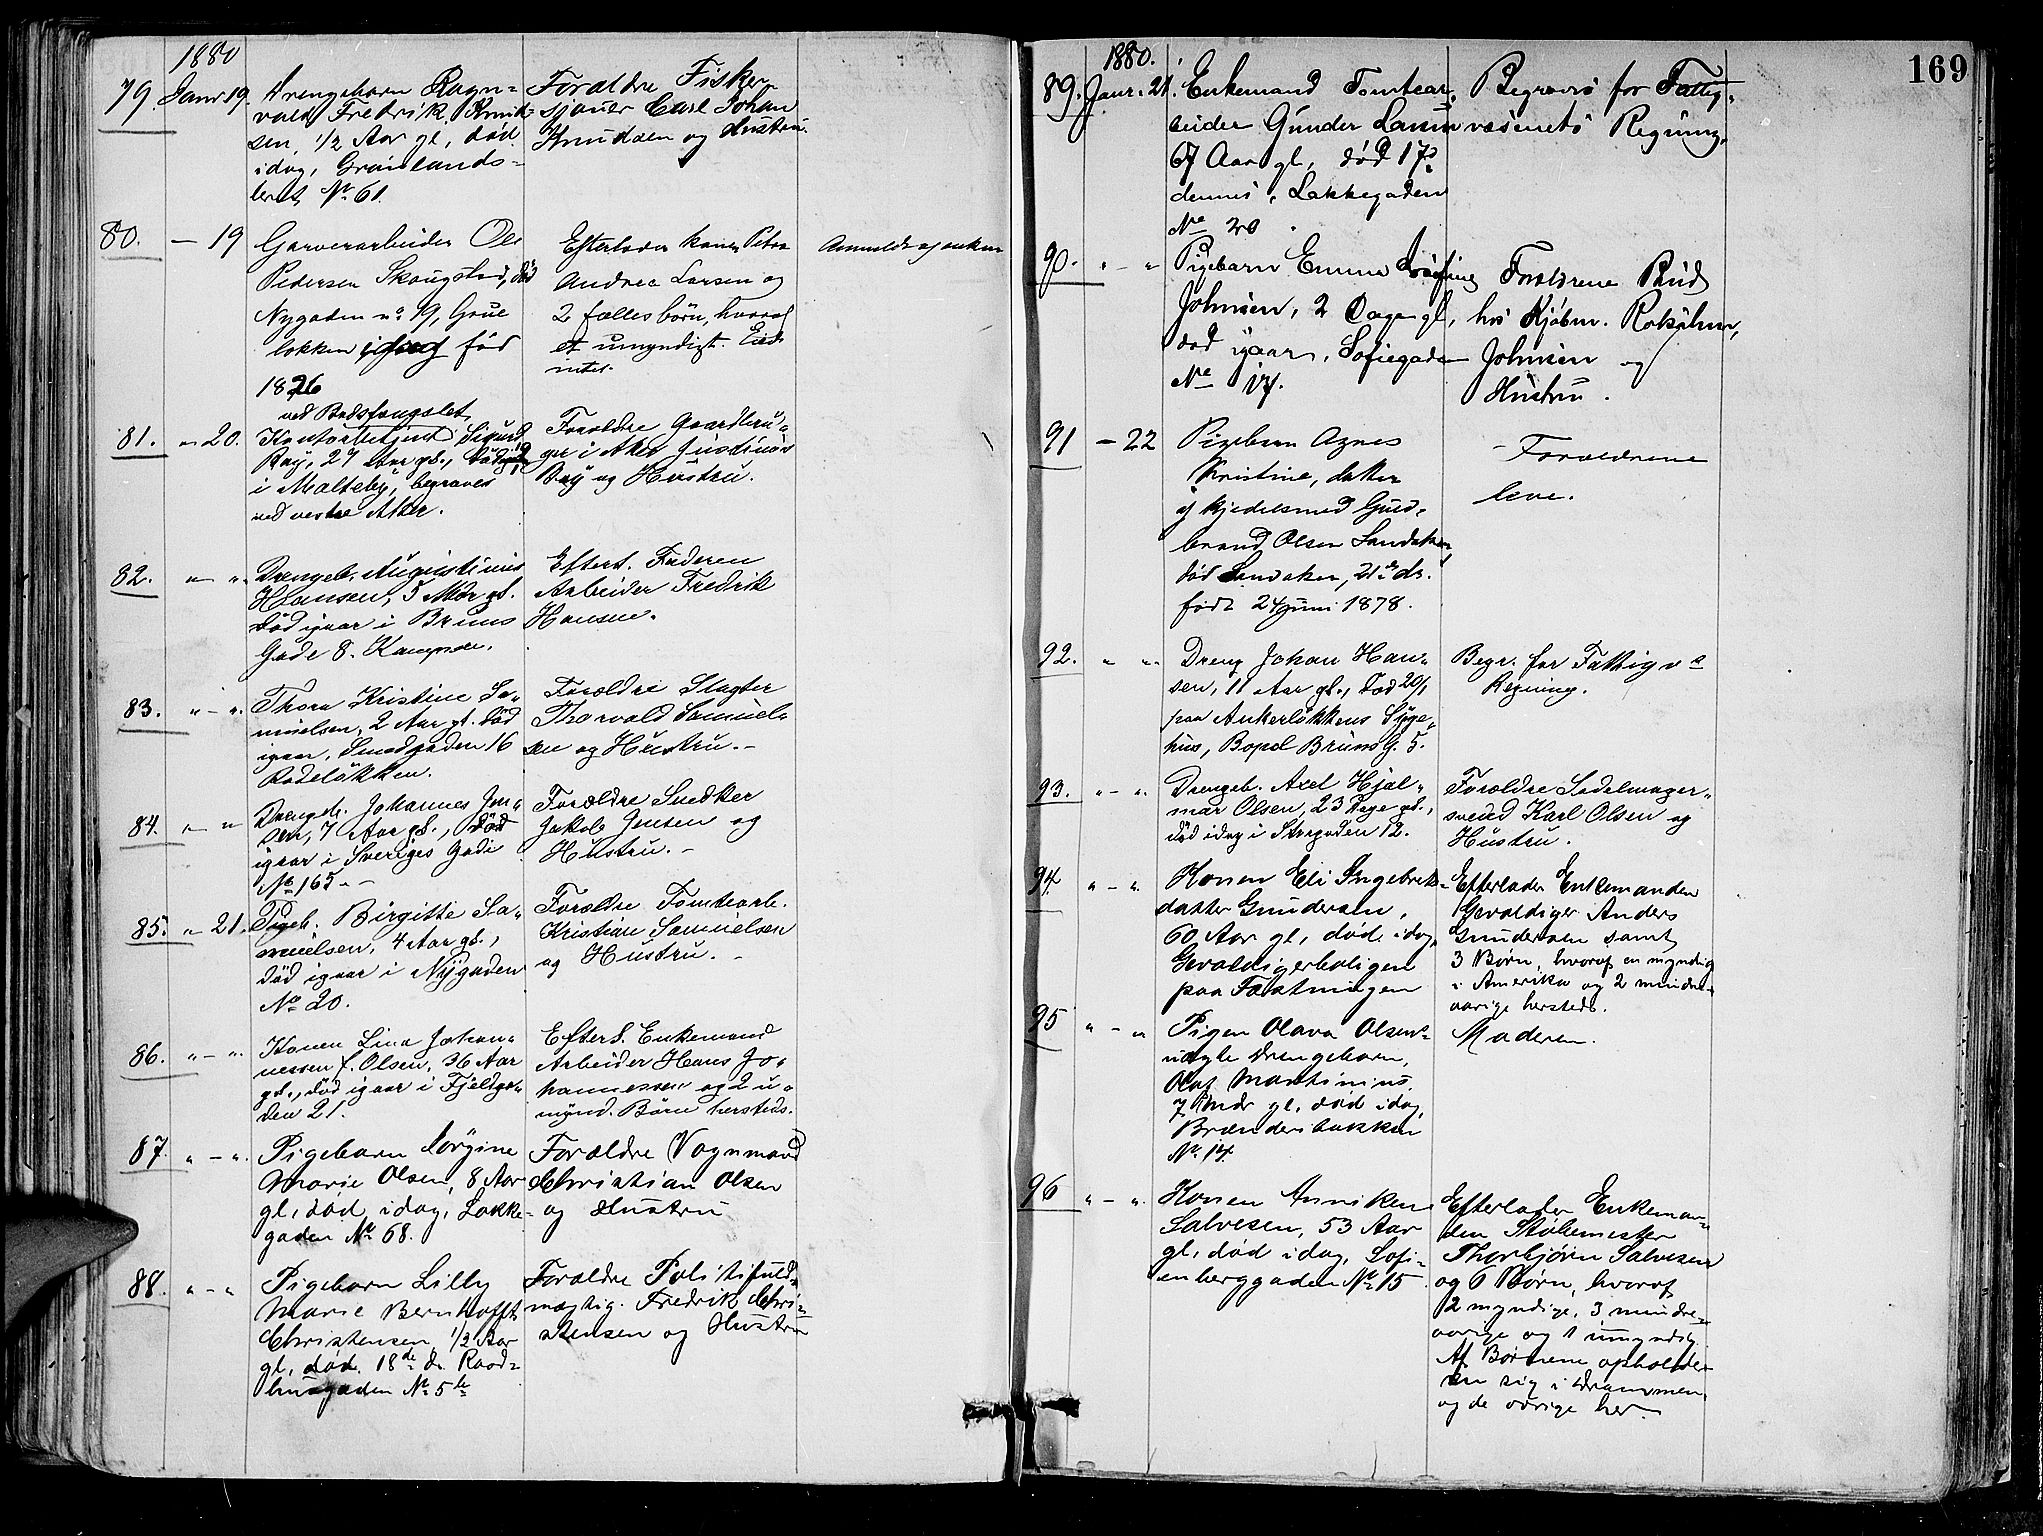 1880
79. Janr 19. Drengebarn Ragn=
vald Fredrik Knud=
sen, 1/2 Aar gl, død
idag, Grønlands=
leret No 61.
Forældre Fisker
Carl Johan
Knudsen og Hustru.
80. — 19 Garverarbeider Ole
Pedersen Skougstad, død
Nygaden no 19, Grue
løkken idag født
1826
Efterlader konen Petra
Andrea Larsen og
2 fælles børn, hvoraf
et umyndigt. Eied
intet.
Anmeldt af enken
81. " 20. ved Bodsfængslet
Kontorbetjent Sigurd
Ray, 27 Aar gl., død 19/1
i Malteby, begraves
ved vestre Aker.
Forældre Gaardbru=
ger i Aker Justinus
Ray og Hustru.
82. " — " Drengeb. Augustinus
Hansen, 5 Mdr gl.
død igaar i Bruns
Gade 8. Kampen.
Efterl. Faderen
Arbeider Fredrik
Hansen.
83. " — " Thora Kristine Sa=
muelsen, 2 Aar gl. død
igaar, Smedgaden 16
Rodeløkken.
Forældre Slagter
Thorvald Samuel=
sen og Hustru. -
84. " — " Drengeb. Johannes Jen=
sen, 7 Aar gl., død
igaar i Sveriges Gade
No 165. -
Forældre Snedker
Jakob Jensen og
Hustru. -
85. " 21. Pigeb. Birgitte Sa=
muelsen, 4 Aar gl.,
død igaar i Nygaden
No 20.
Forældre Tomtearb.
Kristian Samuelsen
og Hustru. -
86. " — " Konen Lina Johan=
nessen f. Olsen, 36 Aar
gl., død igaar i Fjeldga=
den 21.
Efterl. Enkemand
Arbeider Hans Jo=
hannessen og 2 u=
mynd. Børn hersteds.
87. " — " Pigebarn Jørgine
Marie Olsen, 8 Aar
gl, død idag, Lakke=
gaden No 68.
Forældre Vognmand
Christian Olsen
og Hustru
88. " — " Pigebarn Lilly
Marie Bernhofft
Christensen 1/2 Aar
gl, død 18de ds. Raad=
husgaden No 5 b
Forældre Politifuld=
mægtig. Fredrik Chri=
stensen og Hustru
169
1880.
89. Janr. 21. Enkemand Tomtear=
beider Gunder Larsen
67 Aar gl, død 17de
dennes, Lakkegaden
No 20
Begraves for Fattig=
væsenets Regning.
90. " — " Pigebarn Emma Josefine
Johnsen, 2 Dage gl,
død igaar, Sofiegaden
No 17.
Forældrene Bud
hos Kjøbm.
Johnsen og
Hustru.
91 — 22 Pigebarn Agnes
Kristine, datter
af Kjedelsmed Gud=
brand Olsen Sandaker,
død Sandaker, 21de ds.
født 24 juni 1878.
Forældrene
leve.
92. " " Dreng Johan Han=
sen, 11 Aar gl., død 20/1
paa Ankerløkkens Syge=
hus, Bopæl Bruns G. 5.
Begr. for Fattigv s
Regning.
93. " — " Drengeb. Axel Hjal=
mar Olsen, 23 Dage gl.,
død idag i Storgaden 12.
Forældre Sadelmager=
svend Karl Olsen og
Hustru.
94. " — " Konen Eli Ingebrets=
datter Gundersen,
60 Aar gl, død idag,
Gevaldigerboligen
paa Fæstningen
Efterlader Enkemanden
Gevaldiger Anders
Gundersen samt
3 Børn, hvoraf en myndig
i Amerika og 2 mindre=
aarige hersteds.
95 " — " Pigen Olava Olsens
uægte Drengebarn,
Olaf Martinius,
7 Mdr gl, død idag,
Brænderibakken
No 14.
Moderen.
96 " — " Konen Anniken
Salvesen, 53 Aar
gl, død idag, Sofi=
enberggaden No 15
Efterlader Enkeman=
den Støbemester
Thorbjørn Salvesen
og 6 Børn, hvoraf
2 myndige, 3 mindre=
aarige og 1 umyndig.
Af Børnene opholder
en sig i Drammen,
og de øvrige her.